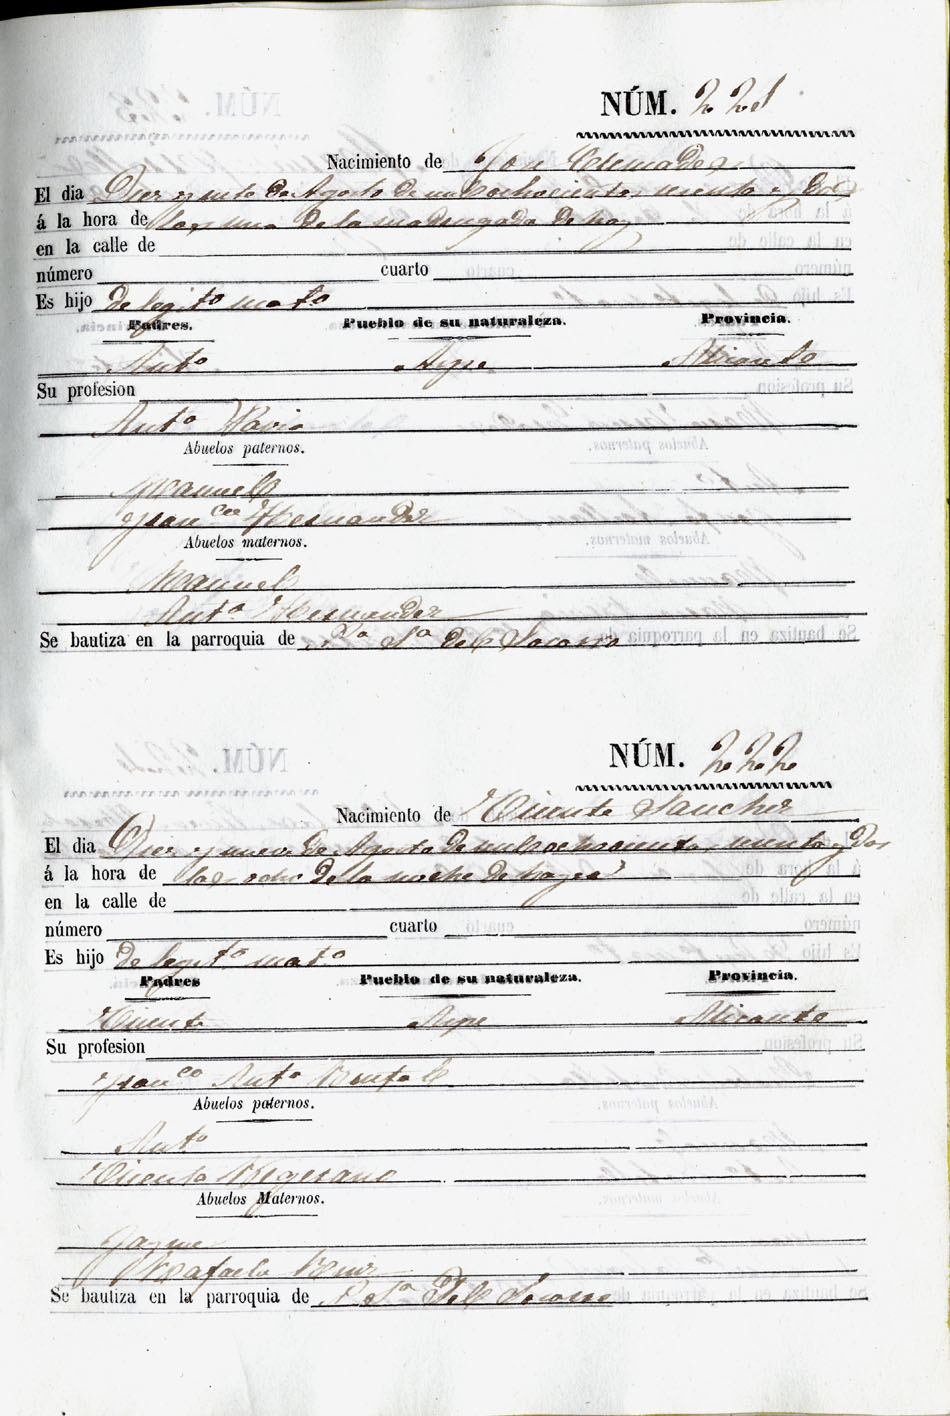 NÚM. 221
Nacimiento de
El dia Diez y nuebe de Agosto de mil ochocientos secenta y dos
á la hora de las una de la madrugada de hoy
en la calle de
número cuarto
Es hijo de legit.º mat.º
Padres. Pueblo de su naturaleza. Provincia.
Ant.º Aspe Alicante
Su profesion
Ant.ª Pavia
Abuelos paternos.
Manuel
Fran.ca Hernandez
Abuelos maternos.
Manuel
Ant.ª Hernandez
Se bautiza en la parroquia de N.ª S.ª del Socorro
NÚM. 222
Nacimiento de Vicente Sanchez
El dia Diez y nueve de Agosto de mil ochocientos secenta y dos
á la hora de las ocho de la noche de hayer
en la calle de
número cuarto
Es hijo de legit.º mat.º
Padres Pueblo de su naturaleza. Provincia.
Vicente Aspe Alicante
Su profesion
Ant.ª
Abuelos paternos.
Ant.º
Vicenta
Abuelos Maternos.
Jayme
Rafaela
Se bautiza en la parroquia de N. S.ª del Socorro